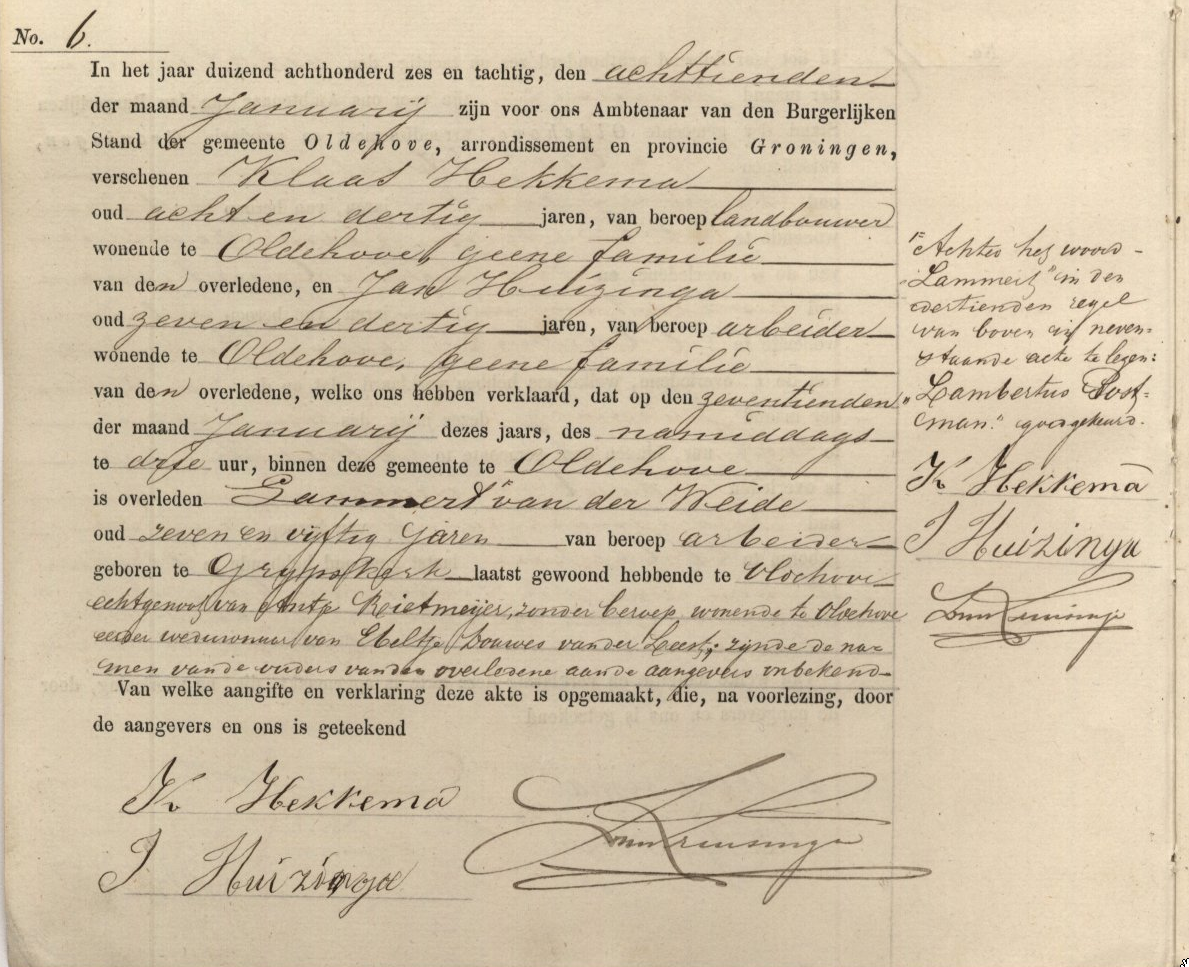 No. 6.
In het jaar duizend achthonderd zes en tachtig, den achttienden
der maand Januarij zijn voor ons Ambtenaar van den Burgerlijken
Stand der gemeente Oldehove, arrondissement en provincie Groningen,
verschenen Klaas Hekkema
oud acht en dertig jaren, van beroep landbouwer
wonende te Oldehove, geene familie
van den overledene, en Jan Huizinga
oud zeven en dertig jaren, van beroep arbeider
wonende te Oldehove, geene familie
van den overledene, welke ons hebben verklaard, dat op den zeventienden
der maand Januarij dezes jaars, des namiddags
te drie uur, binnen deze gemeente te Oldehove
is overleden Lammert " van der Weide
oud zeven en vijftig jaren van beroep arbeider
geboren te Grijpskerk laatst gewoond hebbende te Oldehove
echtgenoot van Antje Rietmeijer, zonder beroep, wonende te Oldehove
eerder weduwnaar van Ebeltje Douwes van der Leest; zijnde de na=
men van de ouders van den overledene aan de aangevers onbekend
Van welke aangifte en verklaring deze akte is opgemaakt, die, na voorlezing, door
de aangevers en ons is geteekend
K. Hekkema
J Huizinga
"Achter het woord
"Lammert" in den
dertienden regel
van boven in neven=
staande acte te lezen:
"Lambertus Post=
man." goedgekeurd.
K. Hekkema
J Huizinga